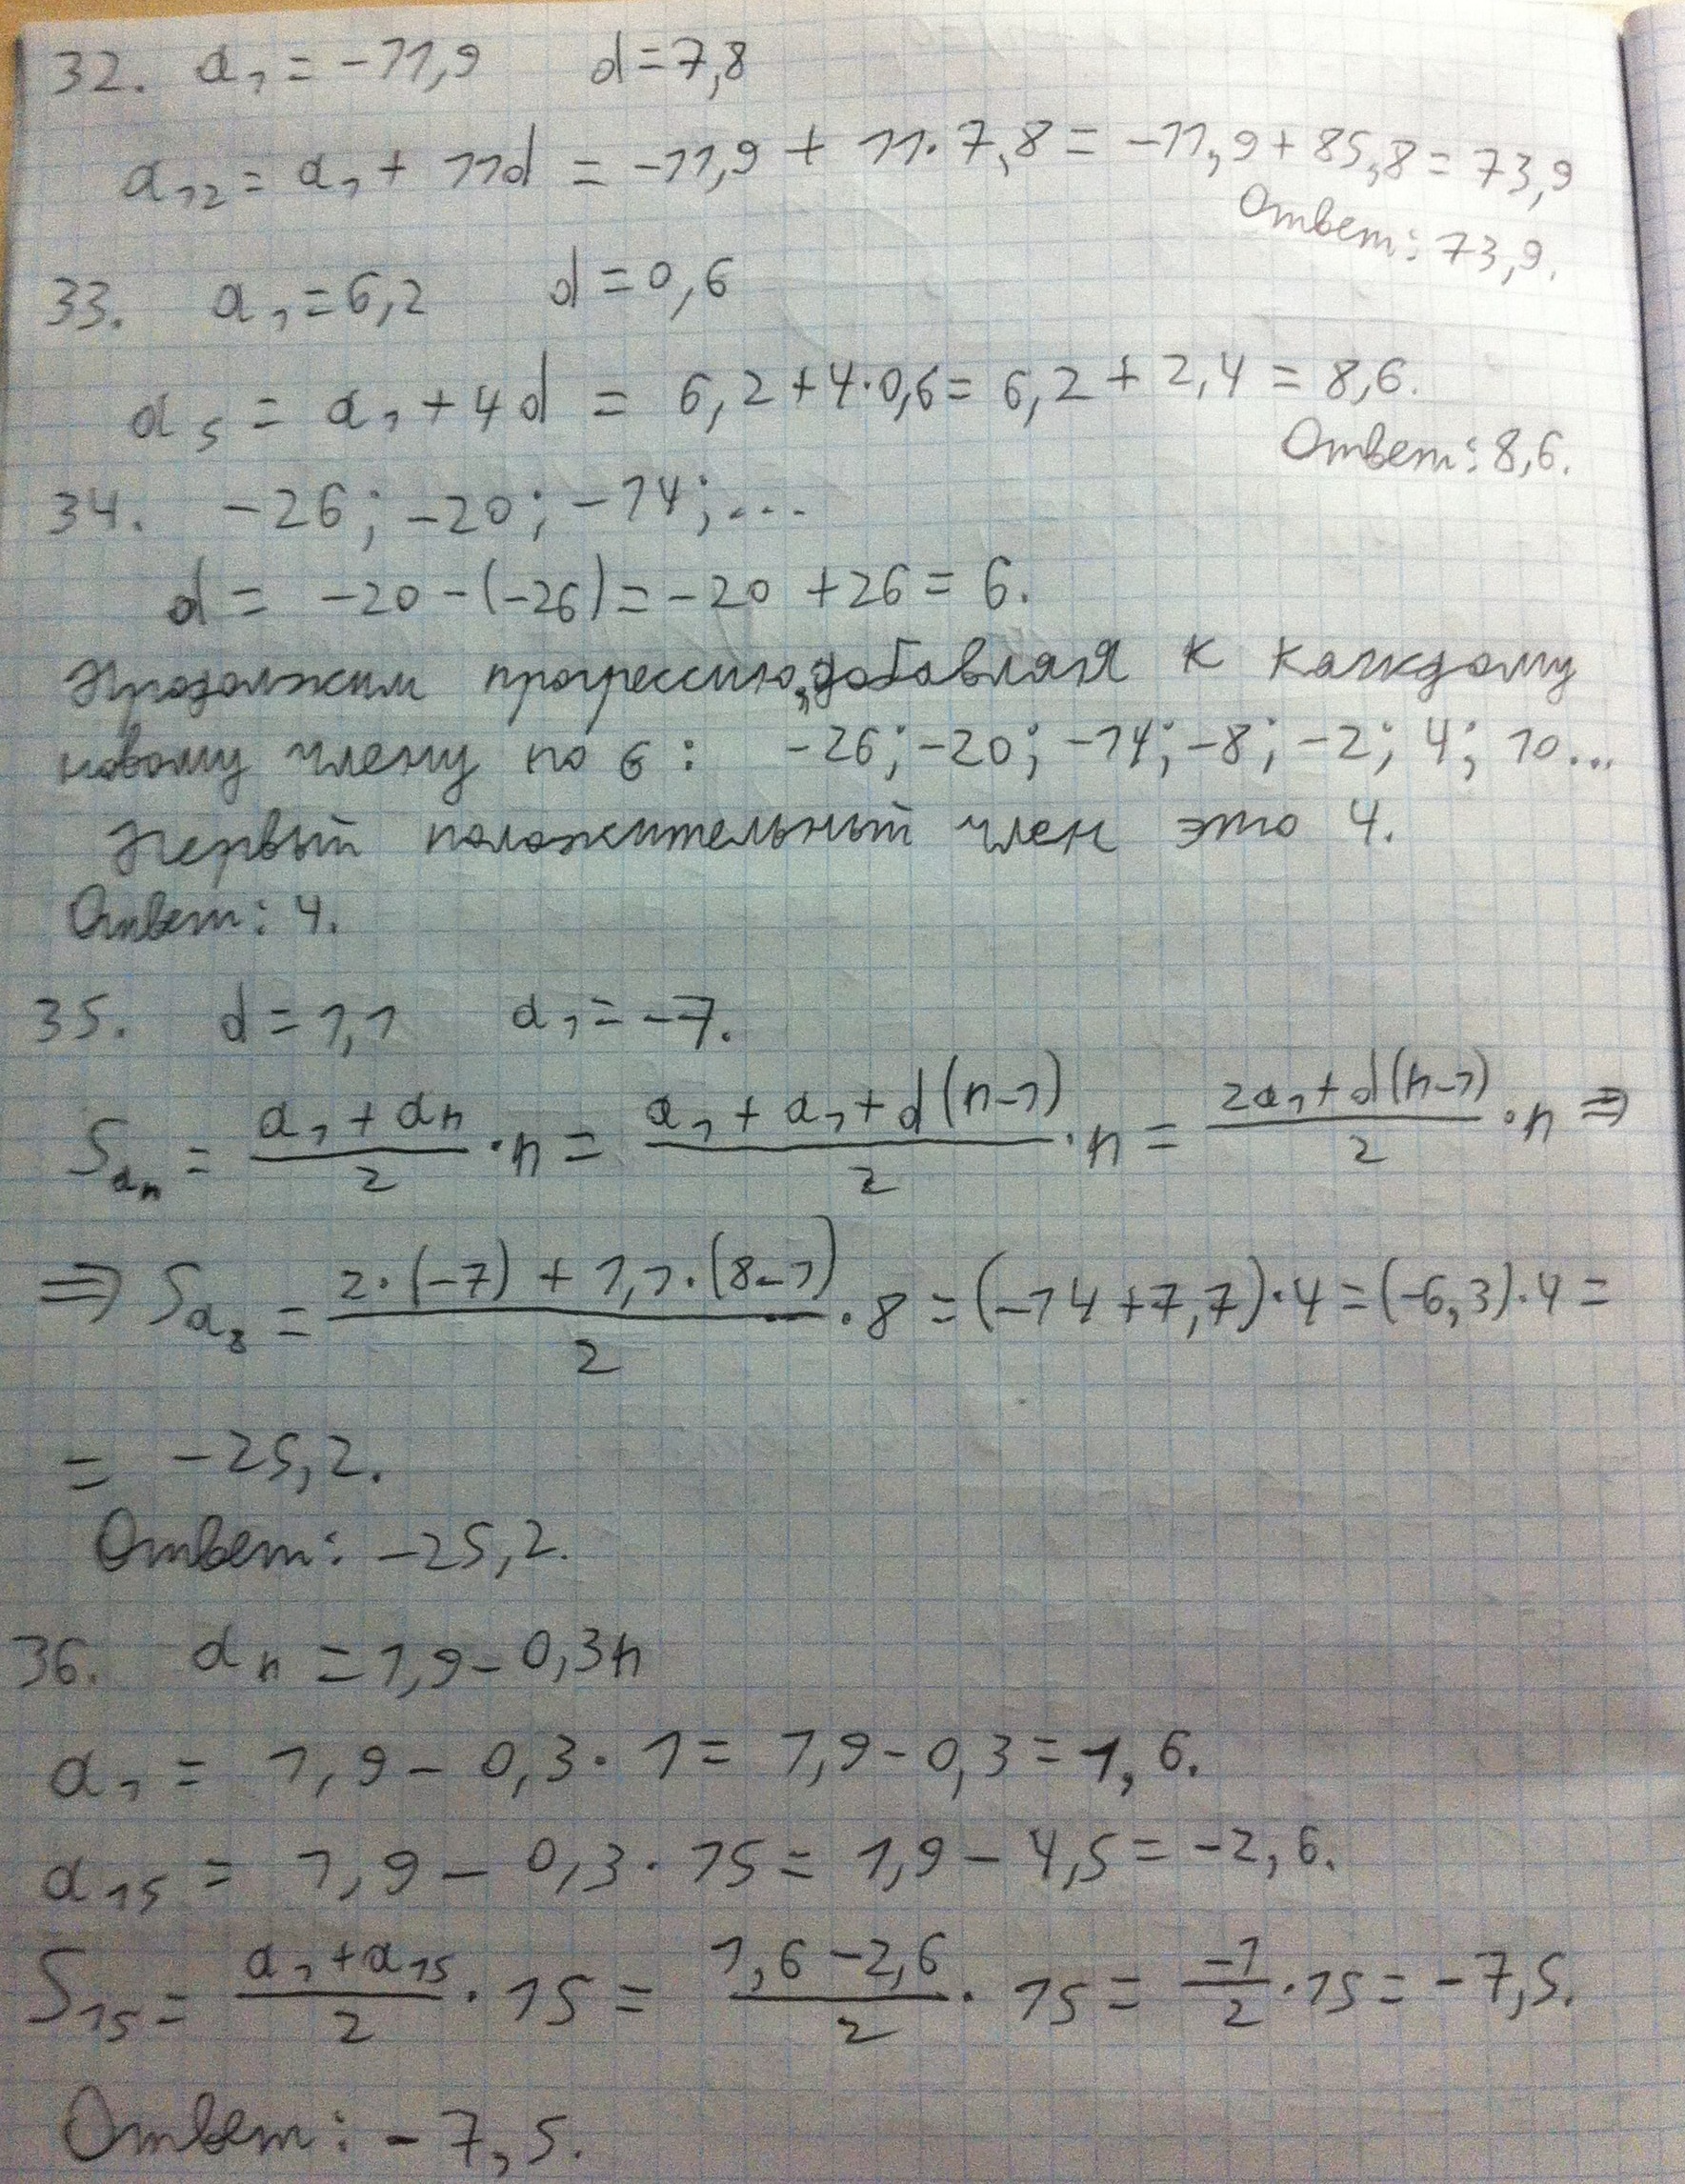 32. a₁ = -11,9 d = 7,8
a₁₂ = a₁ + 11d = -11,9 + 11·7,8 = -11,9 + 85,8 = 73,9
Ответ: 73,9.
33. a₁ = 6,2 d = 0,6
a₅ = a₁ + 4d = 6,2 + 4·0,6 = 6,2 + 2,4 = 8,6.
Ответ: 8,6.
34. -26; -20; -14; ...
d = -20 - (-26) = -20 + 26 = 6.
Продолжим прогрессию, добавляя к каждому
новому члену по 6: -26; -20; -14; -8; -2; 4; 10...
Первый положительный член это 4.
Ответ: 4.
35. d = 1,1 a₁ = -7.
S_{aₙ} = \frac{a₁ + aₙ}{2} · n = \frac{a₁ + a₁ + d(n-1)}{2} · n = \frac{2a₁ + d(n-1)}{2} · n ⇒
⇒ S_{a₈} = \frac{2·(-7) + 1,1·(8-1)}{2} · 8 = (-14 + 7,7)·4 = (-6,3)·4 =
= -25,2.
Ответ: -25,2.
36. aₙ = 1,9 - 0,3n
a₁ = 1,9 - 0,3·1 = 1,9 - 0,3 = 1,6.
a₁₅ = 1,9 - 0,3·15 = 1,9 - 4,5 = -2,6.
S₁₅ = \frac{a₁ + a₁₅}{2} · 15 = \frac{1,6 - 2,6}{2} · 15 = \frac{-1}{2} · 15 = -7,5.
Ответ: -7,5.